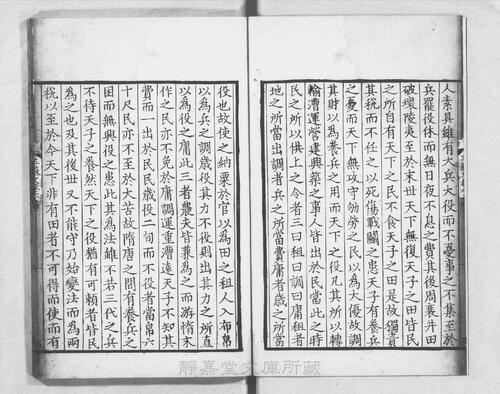 人素具雖有大兵大役而不憂事之不集至於
兵罷役休而無日夜不息之費其後周衰井田
破壞陵夷至於末世天下無復天子之田皆民
之所自有天下之民不食天子之田是故獨責
其稅而不任之以死傷戰鬬之患天子有養兵
之憂而天下無攻守劬勞之民以為大優故調
其財以為養兵之用而天下之役凡其所以轉
輸漕運營建興築之事人皆出於民當此之時
民之所以供上之令者三曰租曰調曰庸租者
地之所當出調者兵之所當費庸者歲之所當
役也故使之納粟於官以為田之租人入布帛
以為兵之調歲役其力不役則出其力之所直
以為役之庸此三者農夫皆兼為之而游惰末
作之民亦不免於庸調運重漕遠天子不知其
費而一出於民民歲役二旬而不役者當帛六
十尺民亦不至於大苦故隋唐之間有養兵之
困而無興役之患此其為法雖不若三代之兵
不待天子之養然天下之役猶有可賴者皆民
為之也及其後世又不能守乃始變法而為兩
稅以至於今天下非有田者不可得而使而有
靜嘉堂文庫所藏